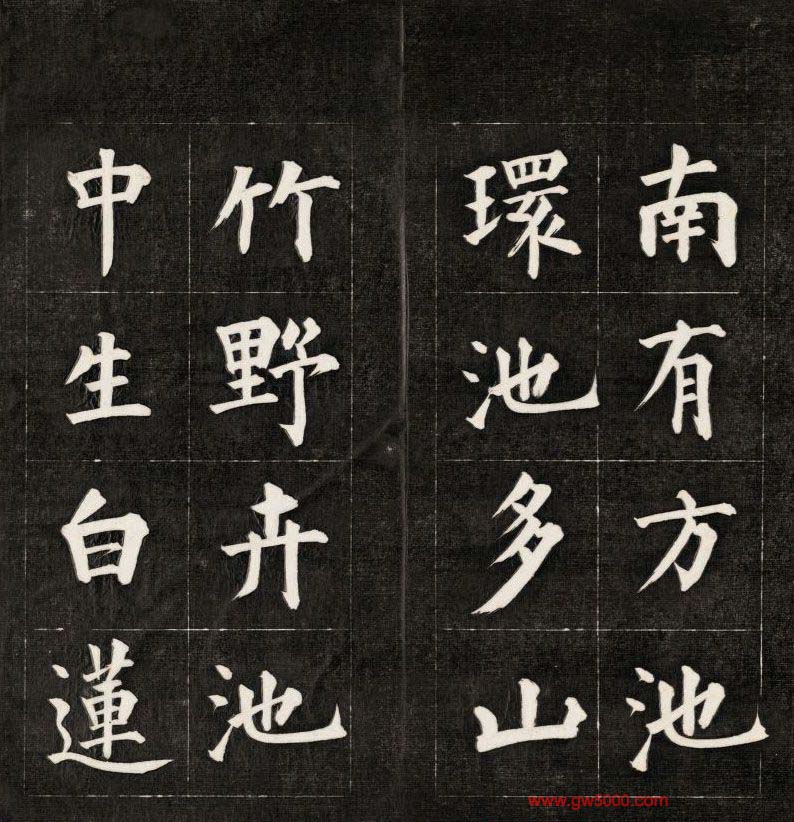 南有方池
環池多山
竹野卉池
中生白蓮
www.gw3000.com